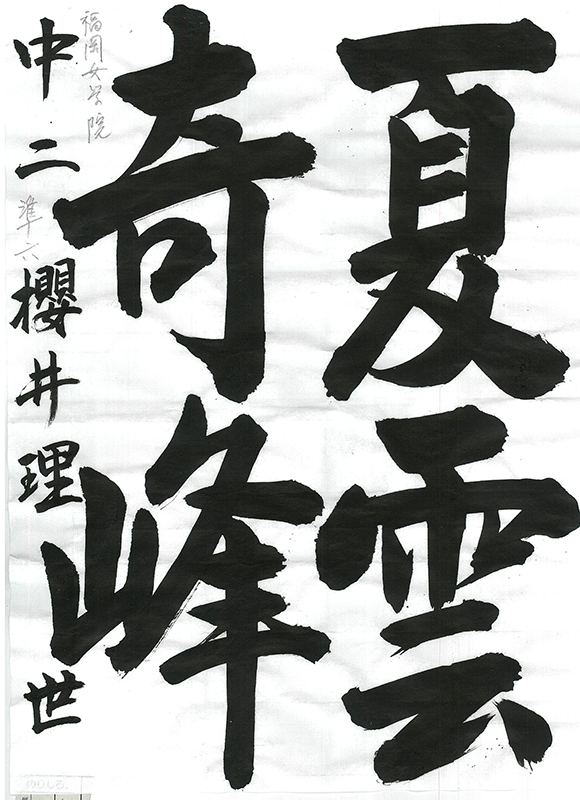 夏雲
奇峰
福岡女学院
中二 櫻井理世
準六